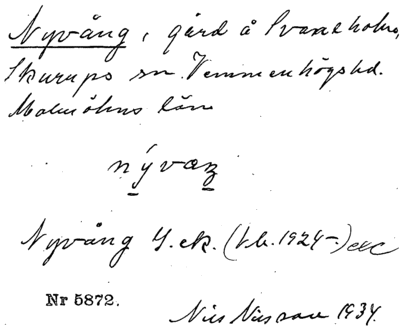 Nyvång, gård å Svaneholm,
Skurups sn. Vemmenhögs hd.
Malmöhus län
Nyvång Y. ek. (t.b. 1924-) etc
Nr 5872.
Nils Nilsson 1934.